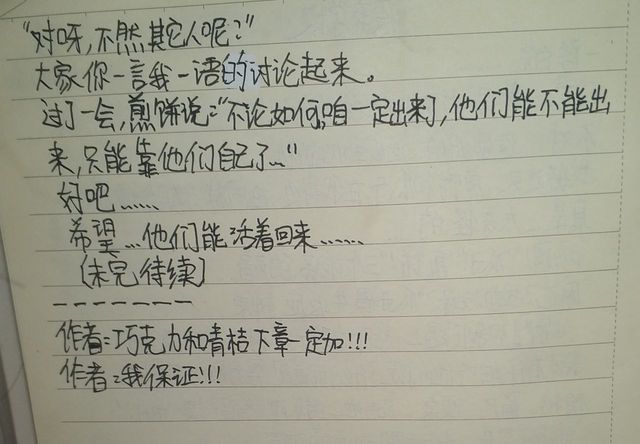 "对呀,不然其它人呢?"
大家你一言我一语的讨论起来。
过了一会,煎饼说:"不论如何,咱一定出来了,他们能不能出
来,只能靠他们自己了..."
好吧......
希望...他们能活着回来......
(未完待续)
-------
作者:巧克力和青桔下章一定加!!!
作者:我保证!!!